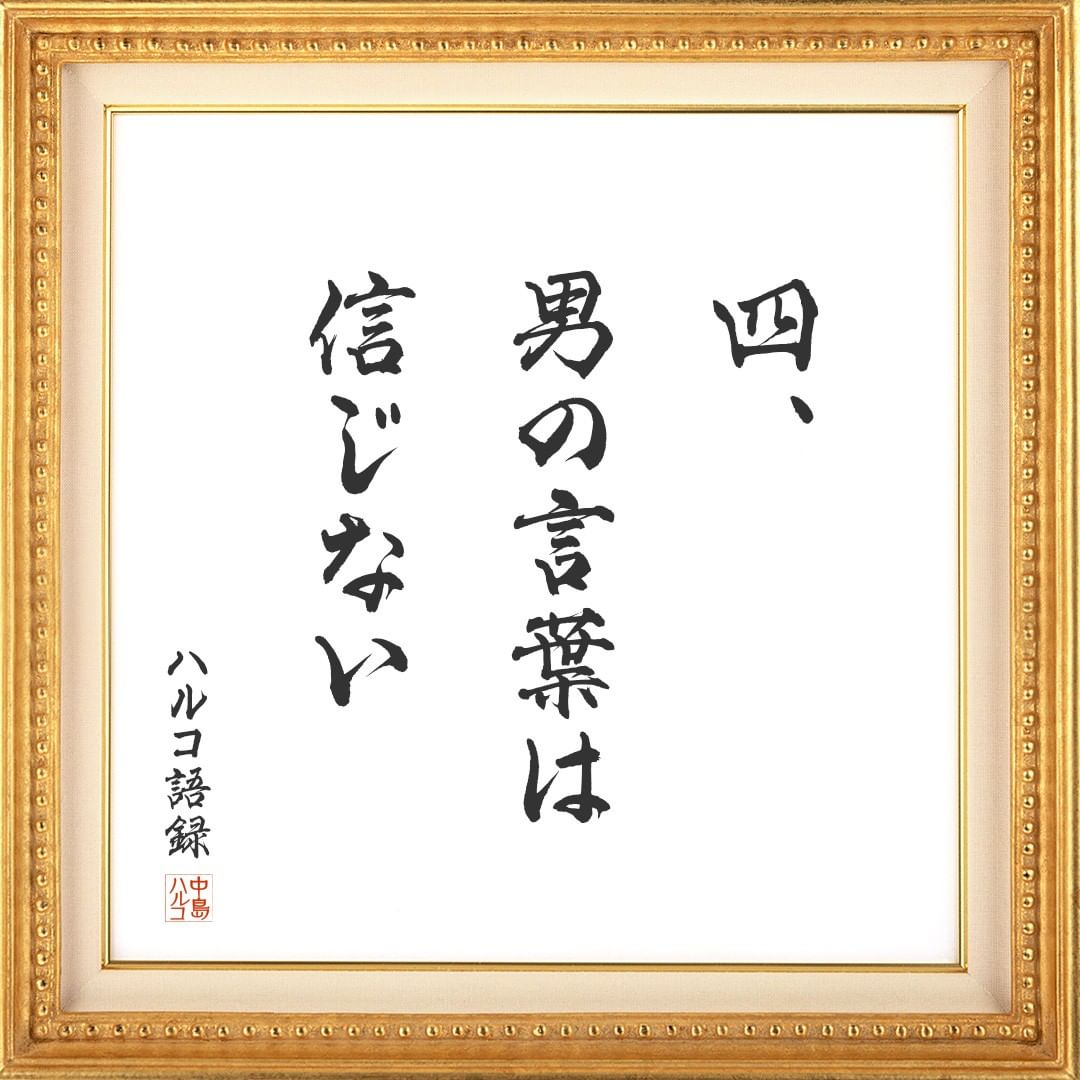 四、
男の言葉は
信じない
ハルコ語録
中島
ハルコ